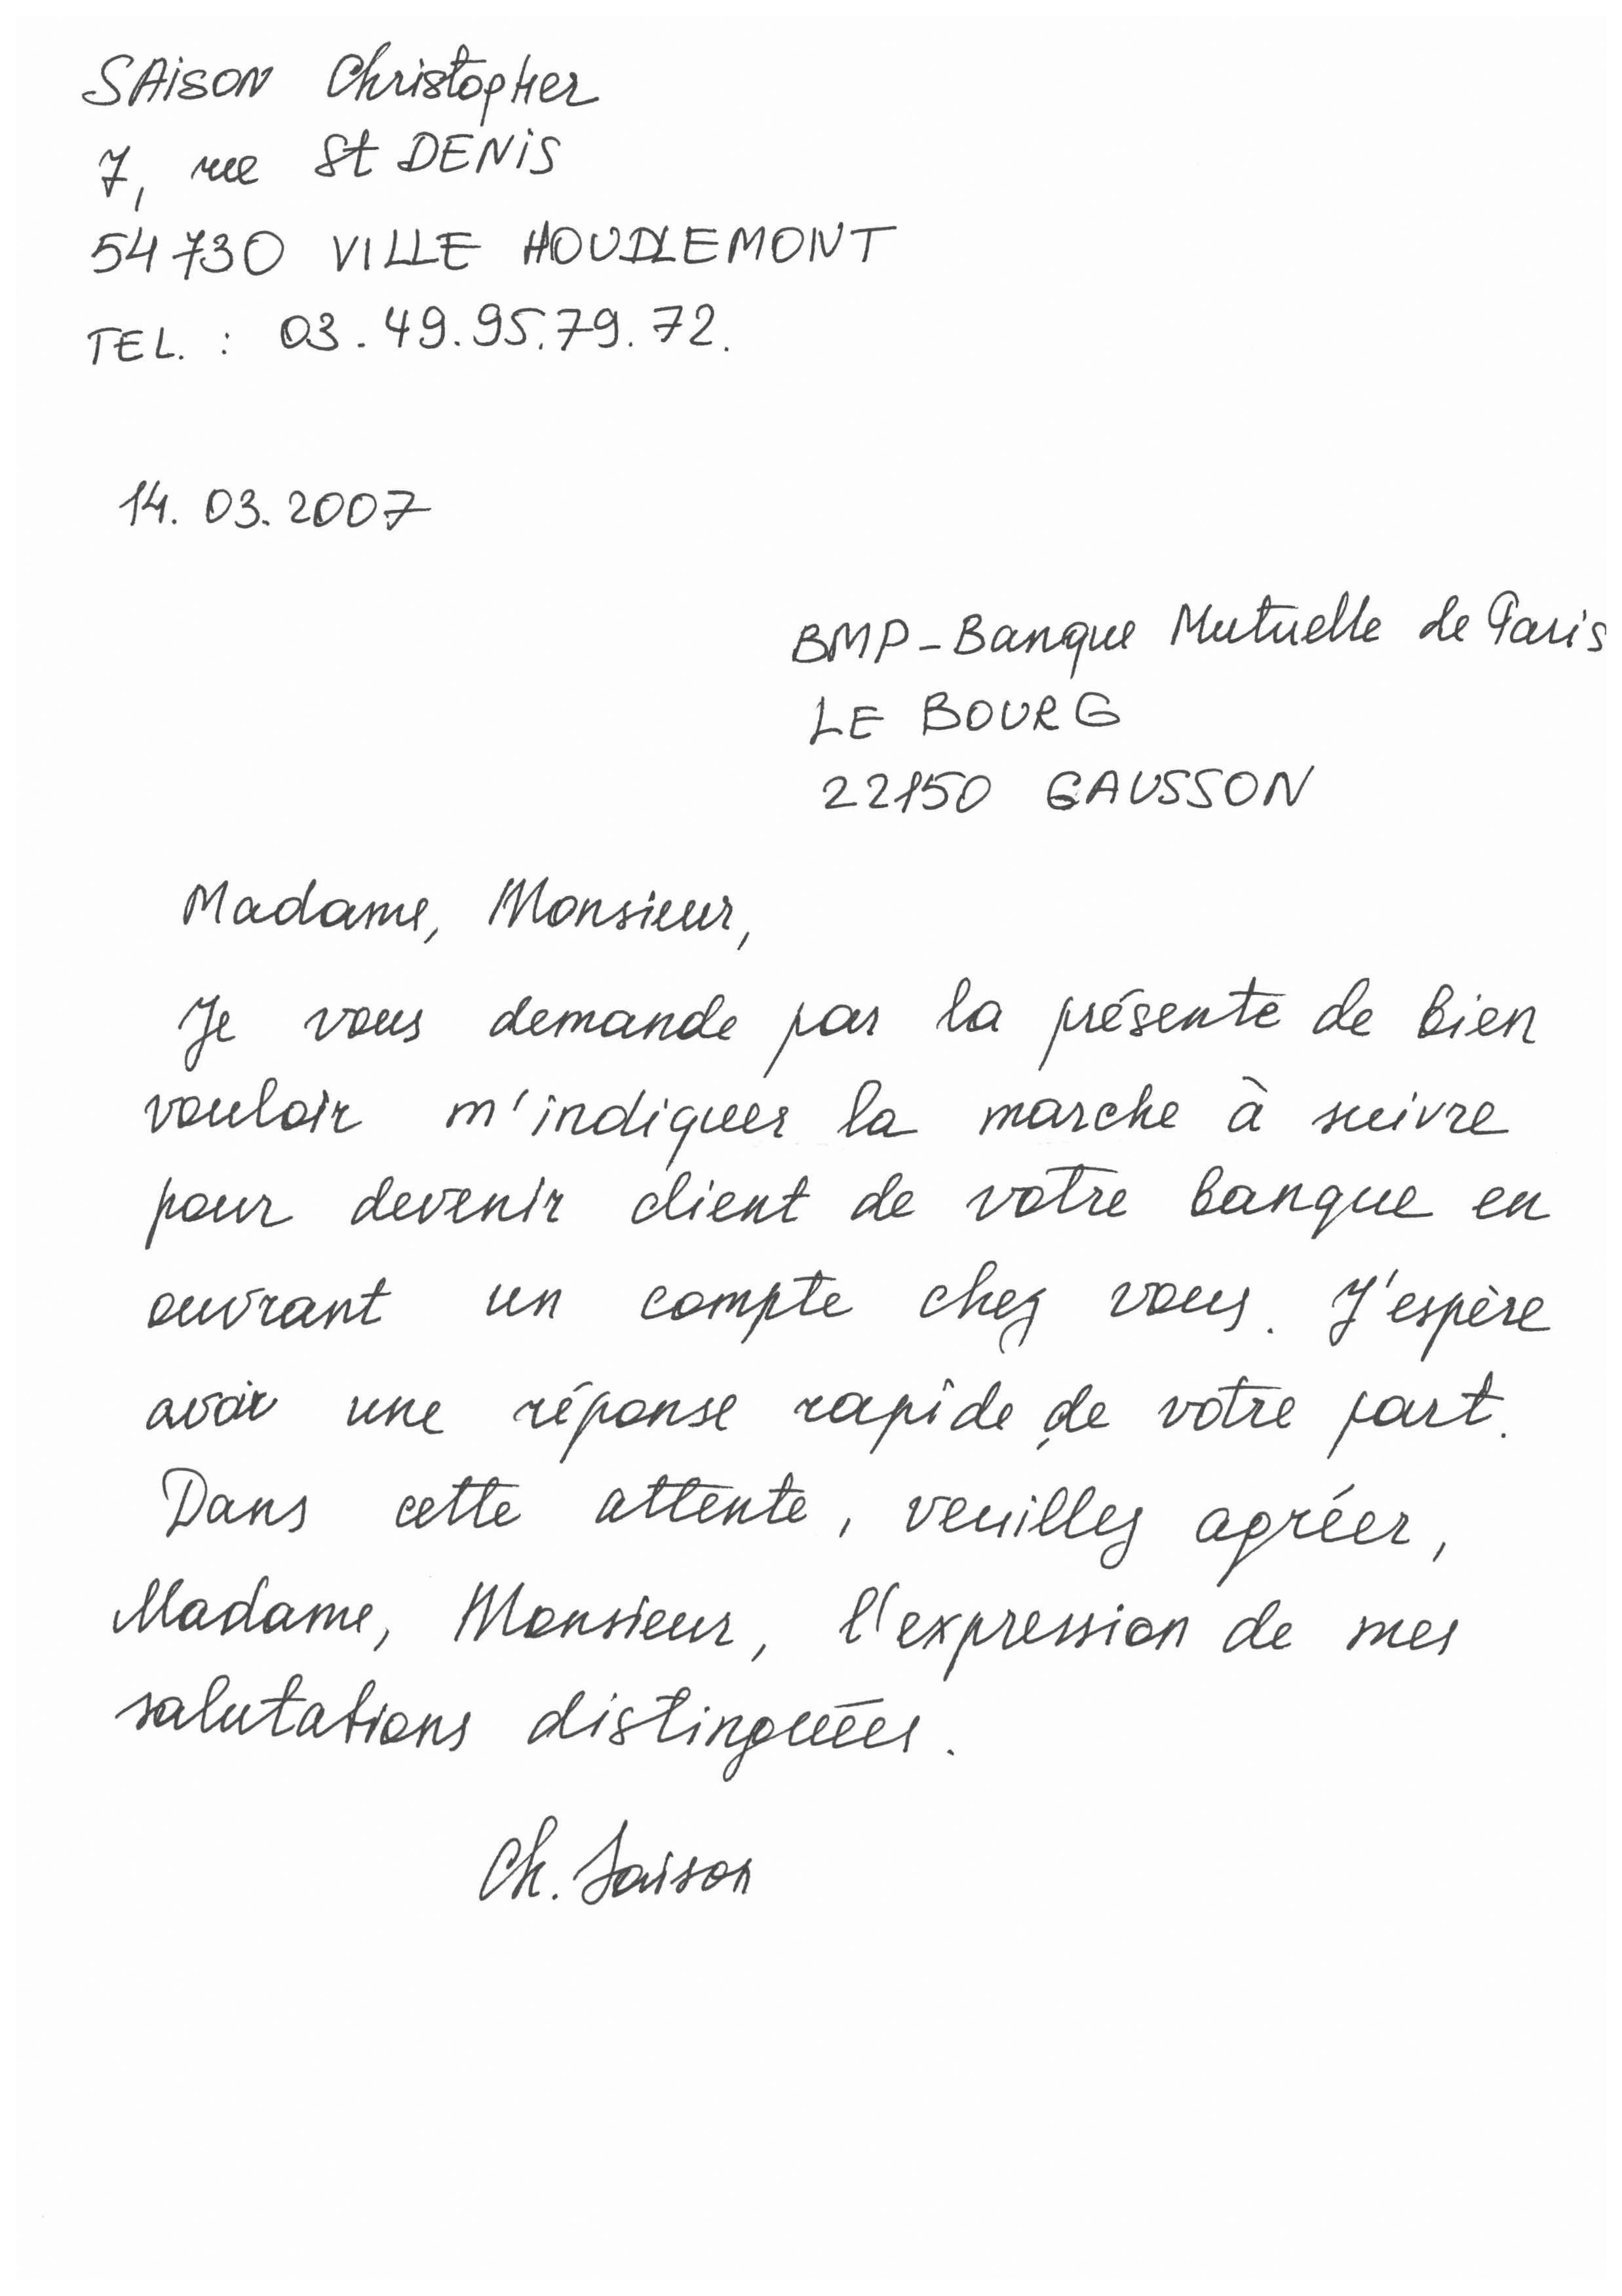 SAISON Christopher
7, rue St DENIS
54730 VILLE HOUDLEMONT
TEL. : 03.49.95.79.72.
14.03.2007
BMP-Banque Mutuelle de Paris
LE BOURG
22150 GAUSSON
Madame, Monsieur,
Je vous demande par la présente de bien
vouloir m'indiquer la marche à suivre
pour devenir client de votre banque en
ouvrant un compte chez vous. J'espère
avoir une réponse rapide de votre part.
Dans cette attente, veuillez agréer,
Madame, Monsieur, l'expression de mes
salutations distinguées.
Ch. Saison